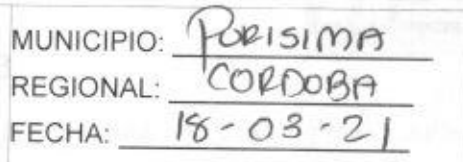 MUNICIPIO: PURISIMA
REGIONAL: CORDOBA
FECHA: 18-03-21